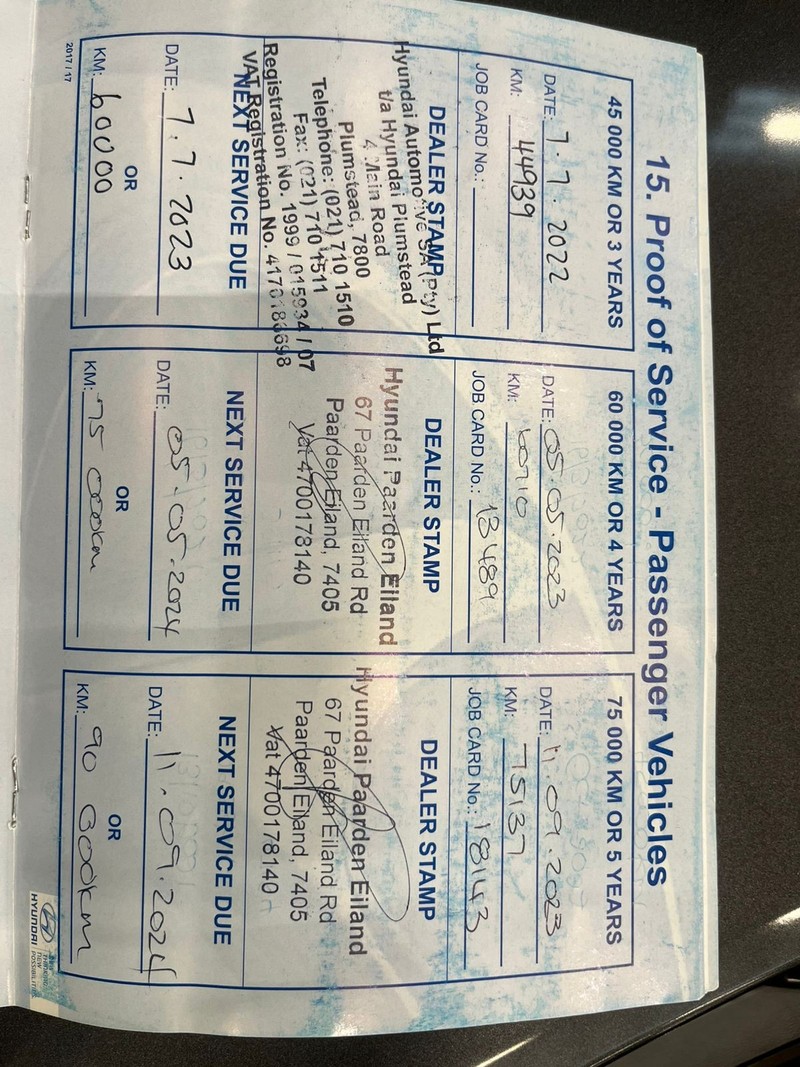 15. Proof of Service - Passenger Vehicles
45 000 KM OR 3 YEARS
DATE: 7.7.2022
KM: 44939
JOB CARD No.:
DEALER STAMP
Hyundai Automotive SA (Pty) Ltd
t/a Hyundai Plumstead
4 Main Road
Plumstead, 7800
Telephone: (021) 710 1510
Fax: (021) 710 1511
Registration No. 1999 / 015934 / 07
VAT Registration No.
NEXT SERVICE DUE
DATE: 7.7.2023
OR
KM: 60000
60 000 KM OR 4 YEARS
DATE: 05.05.2023
KM: 60710
JOB CARD No.: 13489
DEALER STAMP
Hyundai Paarden Eiland
67 Paarden Eiland Rd
Paarden Eiland, 7405
Vat 4700178140
NEXT SERVICE DUE
DATE: 05.05.2024
OR
KM: 75 000km
75 000 KM OR 5 YEARS
DATE: 11.09.2023
KM: 75137
JOB CARD No.: 18143
DEALER STAMP
Hyundai Paarden Eiland
67 Paarden Eiland Rd
Paarden Eiland, 7405
Vat 4700178140
NEXT SERVICE DUE
DATE: 11.09.2024
OR
KM: 90 000km
2017 / 17
HYUNDAI
NEW THINKING.
NEW
POSSIBILITIES.